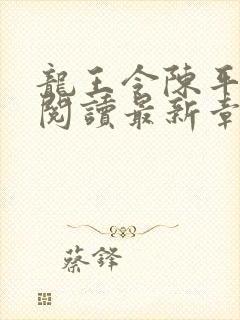 龍王令陳平
閱讀最新章
蔡鋒